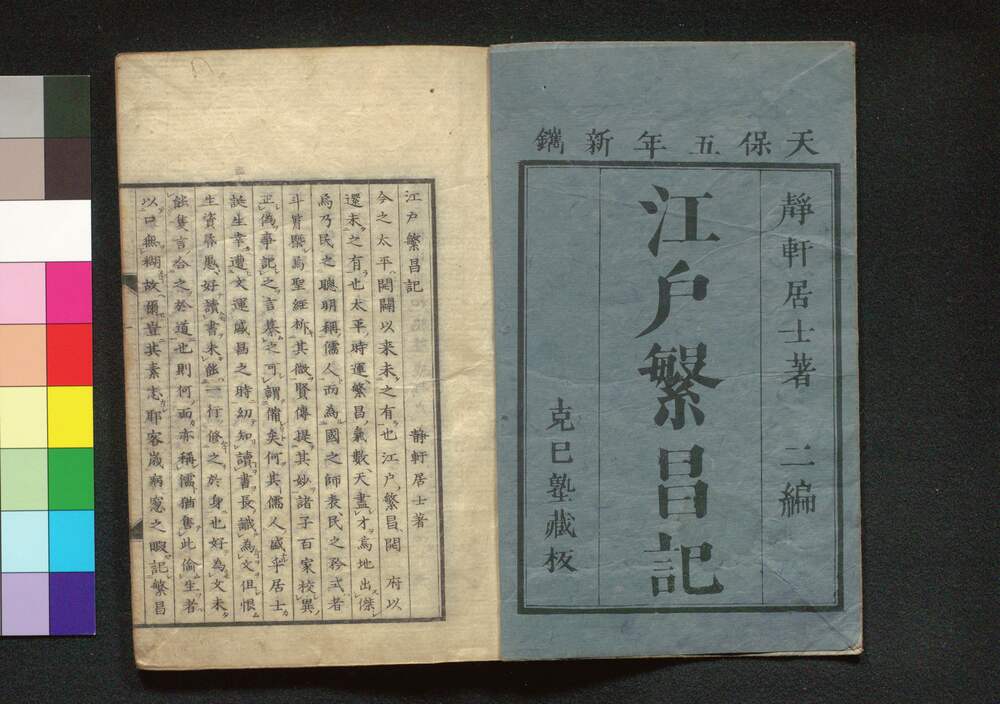 天保五年新鐫
靜軒居士著 二編
江戸繁昌記
克己塾藏板
江戸繁昌記
靜軒居士著
今之太平開闢以来未之有也江戸繁昌開 府以
還未之有也太平時運繁昌氣數天盡才焉地出傑
焉乃民之聰明稱儒人而為國之師表民之矜式者
斗量縣焉聖經析其微賢傳提其妙諸子百家校異
正偽事記之言纂之可謂備矣何其儒人盛乎居士
誕生幸遭文運盛昌之時幼知讀書長識為文但恨
生資愚好讀書未能一行脩之於身也好為文未
能隻言合之於道也則何而亦稱儒猶售此偷生者
以口無糊故爾豈其素志耶客歲病窓之暇記繁昌